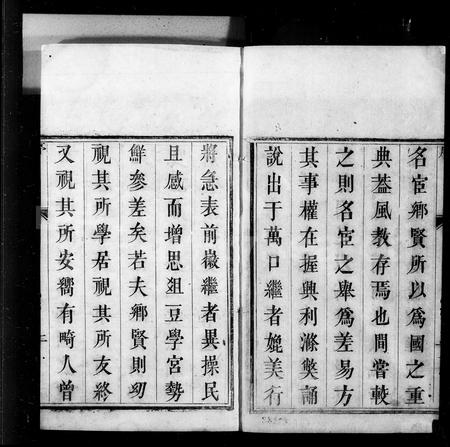 名宦鄉賢所以爲國之重
典葢風教存焉也間嘗較
之則名宦之舉爲差易方
其事權在握興利滌獘誦
說出于萬口繼者媲美行
將急表前徽繼者異操民
且感而增思俎豆學宮勢
鮮參差矣若夫鄉賢則初
視其所學居視其所友終
又視其所安嚮有畸人曾
二